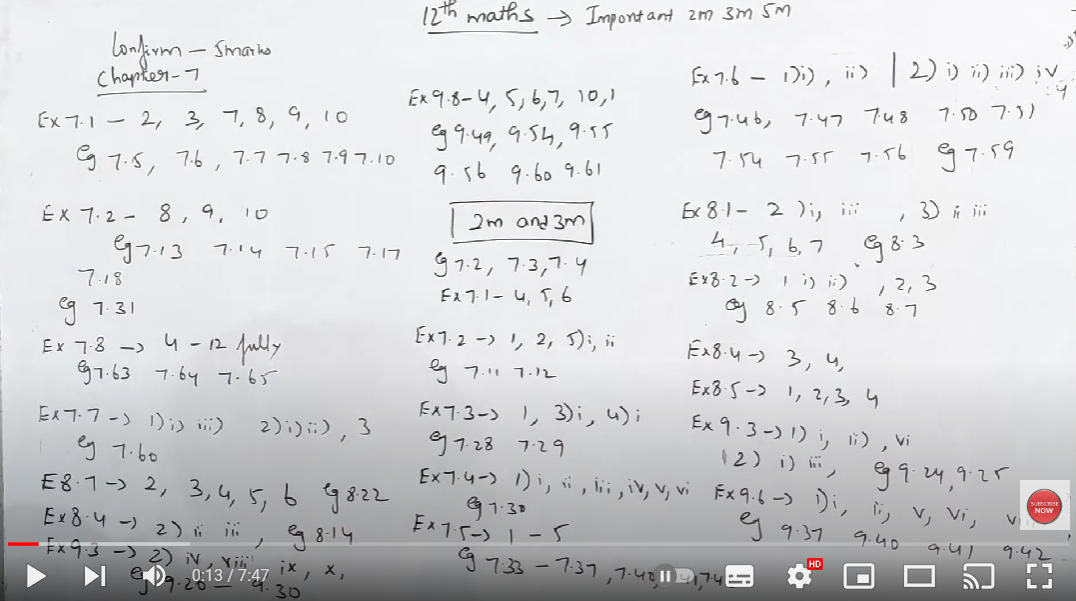 12th maths → Important 2m 3m 5m
Confirm - 5marks
Chapter-7
Ex 7.1 - 2, 3, 7, 8, 9, 10
eg 7.5, 7.6, 7.7 7.8 7.9 7.10
Ex 7.2 - 8, 9, 10
eg 7.13 7.14 7.15 7.17
7.18
eg 7.31
Ex 7.8 → 4 - 12 fully
eg 7.63 7.64 7.65
Ex 7.7 → 1) i) iii) 2) i) ii), 3
eg 7.60
E8.7 → 2, 3, 4, 5, 6 eg 8.22
Ex 8.4 → 2) ii iii, eg 8.14
Ex 9.3 → 2) iv, viii, ix, x,
eg 9.26 - 9.30
Ex 9.8 - 4, 5, 6, 7, 10, 1
eg 9.49, 9.54, 9.55
9.56 9.60 9.61
2m and 3m
eg 7.2, 7.3, 7.4
Ex 7.1 - 4, 5, 6
Ex 7.2 → 1, 2, 5) i, ii
eg 7.11 7.12
Ex 7.3 → 1, 3) i, 4) i
eg 7.28 7.29
Ex 7.4 → 1) i, ii, iii, iv, v, vi
eg 7.30
Ex 7.5 → 1 - 5
eg 7.33 - 7.37, 7.40,
Ex 7.6 - 1) i), ii) | 2) i) ii) iii) iv
eg 7.46, 7.47 7.48 7.50 7.51
7.54 7.55 7.56 eg 7.59
Ex 8.1 - 2) i, iii, 3) ii iii
4, 5, 6, 7 eg 8.3
Ex 8.2 → 1 i) ii), 2, 3
eg 8.5 8.6 8.7
Ex 8.4 → 3, 4,
Ex 8.5 → 1, 2, 3, 4
Ex 9.3 → 1) i, ii), vi
2) i) iii, eg 9.24, 9.25
Ex 9.6 → 1) i, ii, v, vi,
eg 9.37 9.40 9.41 9.42
SUBSCRIBE
NOW
0:13 / 7:47
HD